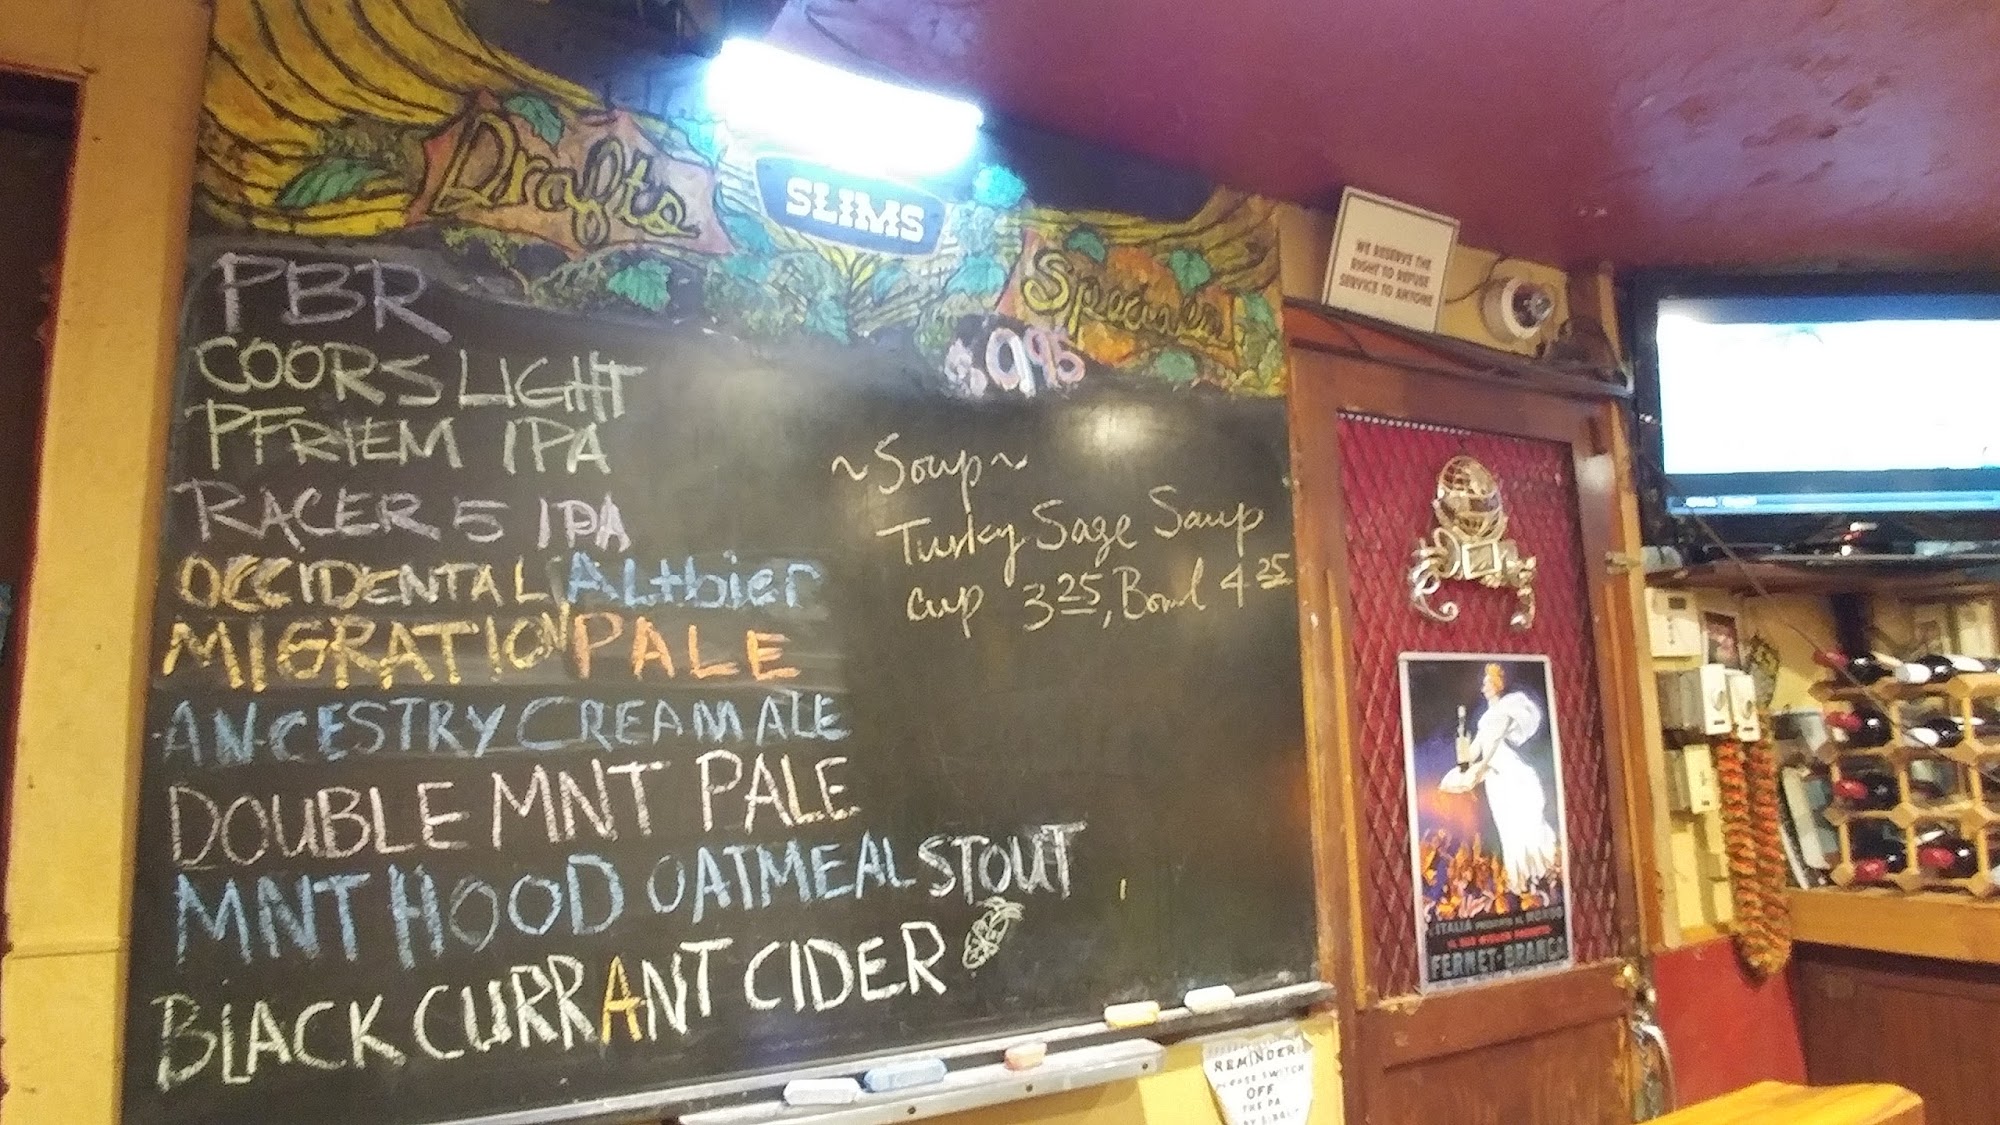 Drafts
SLIMS
Specials
$9.95
PBR
COORS LIGHT
PFRIEM IPA
RACER 5 IPA
OCCIDENTAL Altbier
MIGRATION PALE
ANCESTRY CREAM ALE
DOUBLE MNT PALE
MNT HOOD OATMEAL STOUT
BLACK CURRANT CIDER
~Soup~
Turky Sage Soup
cup 3.25, Bowl 4.25
WE RESERVE THE
RIGHT TO REFUSE
SERVICE TO ANYONE
L'ITALIA AL MONDO
FERNET-BRANCA
REMINDER
PLEASE SWITCH
OFF
THE PA